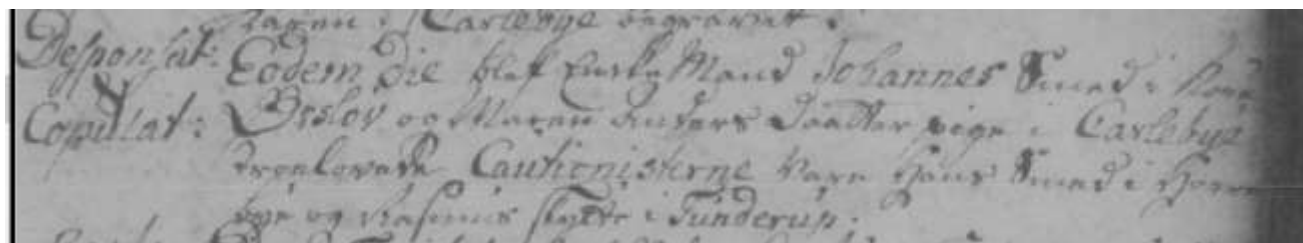 i Carlebye begravet.
Desponsat: Eodem Die blef Enke Mand Johannes Smed i
Copulat: Beslov og Maren Anders Daatter pige i Carlebye
troelovede Cautionisterne vare Hans Smed i
bye og Rasmus Skytte i Tunderup.